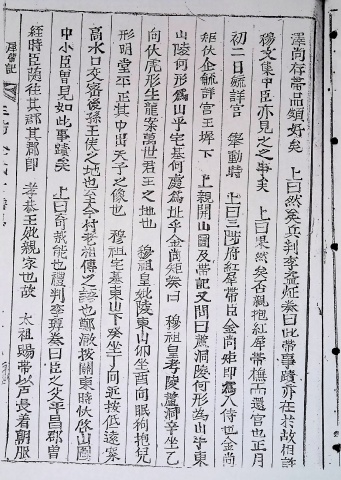 澤尚存帶品頗好矣 上曰然矣兵判李益炡奏曰此帶事蹟亦在於故相臣
穆文集中臣亦見之之事矣 上曰果然矣否親抱紅犀帶樵而還官也正月
初二日毓詳宮 擧動時 上曰三階府紅犀帶臣金尚矩即爲入侍也金尚
矩伏全毓詳宮王墀下 上親開山圖及帶記又問曰蘆洞陵何形爲山乎東
山陵何形爲山乎宅基何處爲址乎金尚矩奏曰 穆祖皇考陵蘆洞辛坐乙
向伏虎形生龍案萬世君王之地也 穆祖皇妣陵東山卯坐酉向眠狗抱兒
形明堂平正其中出天子之像也 穆祖宅基東山下癸坐丁向近按低遠案
高水口交密後孫王侯之地也云今村老相傳之語也鄭澈按關東時狀啓山圖
中小臣曾見如此事蹟矣 上曰奇哉能也禮判李𪼛奏曰臣之父平昌郡曽
經時臣随往其郡其郡即 孝恭王妣親家也故 太祖賜帶以戶長着朝服